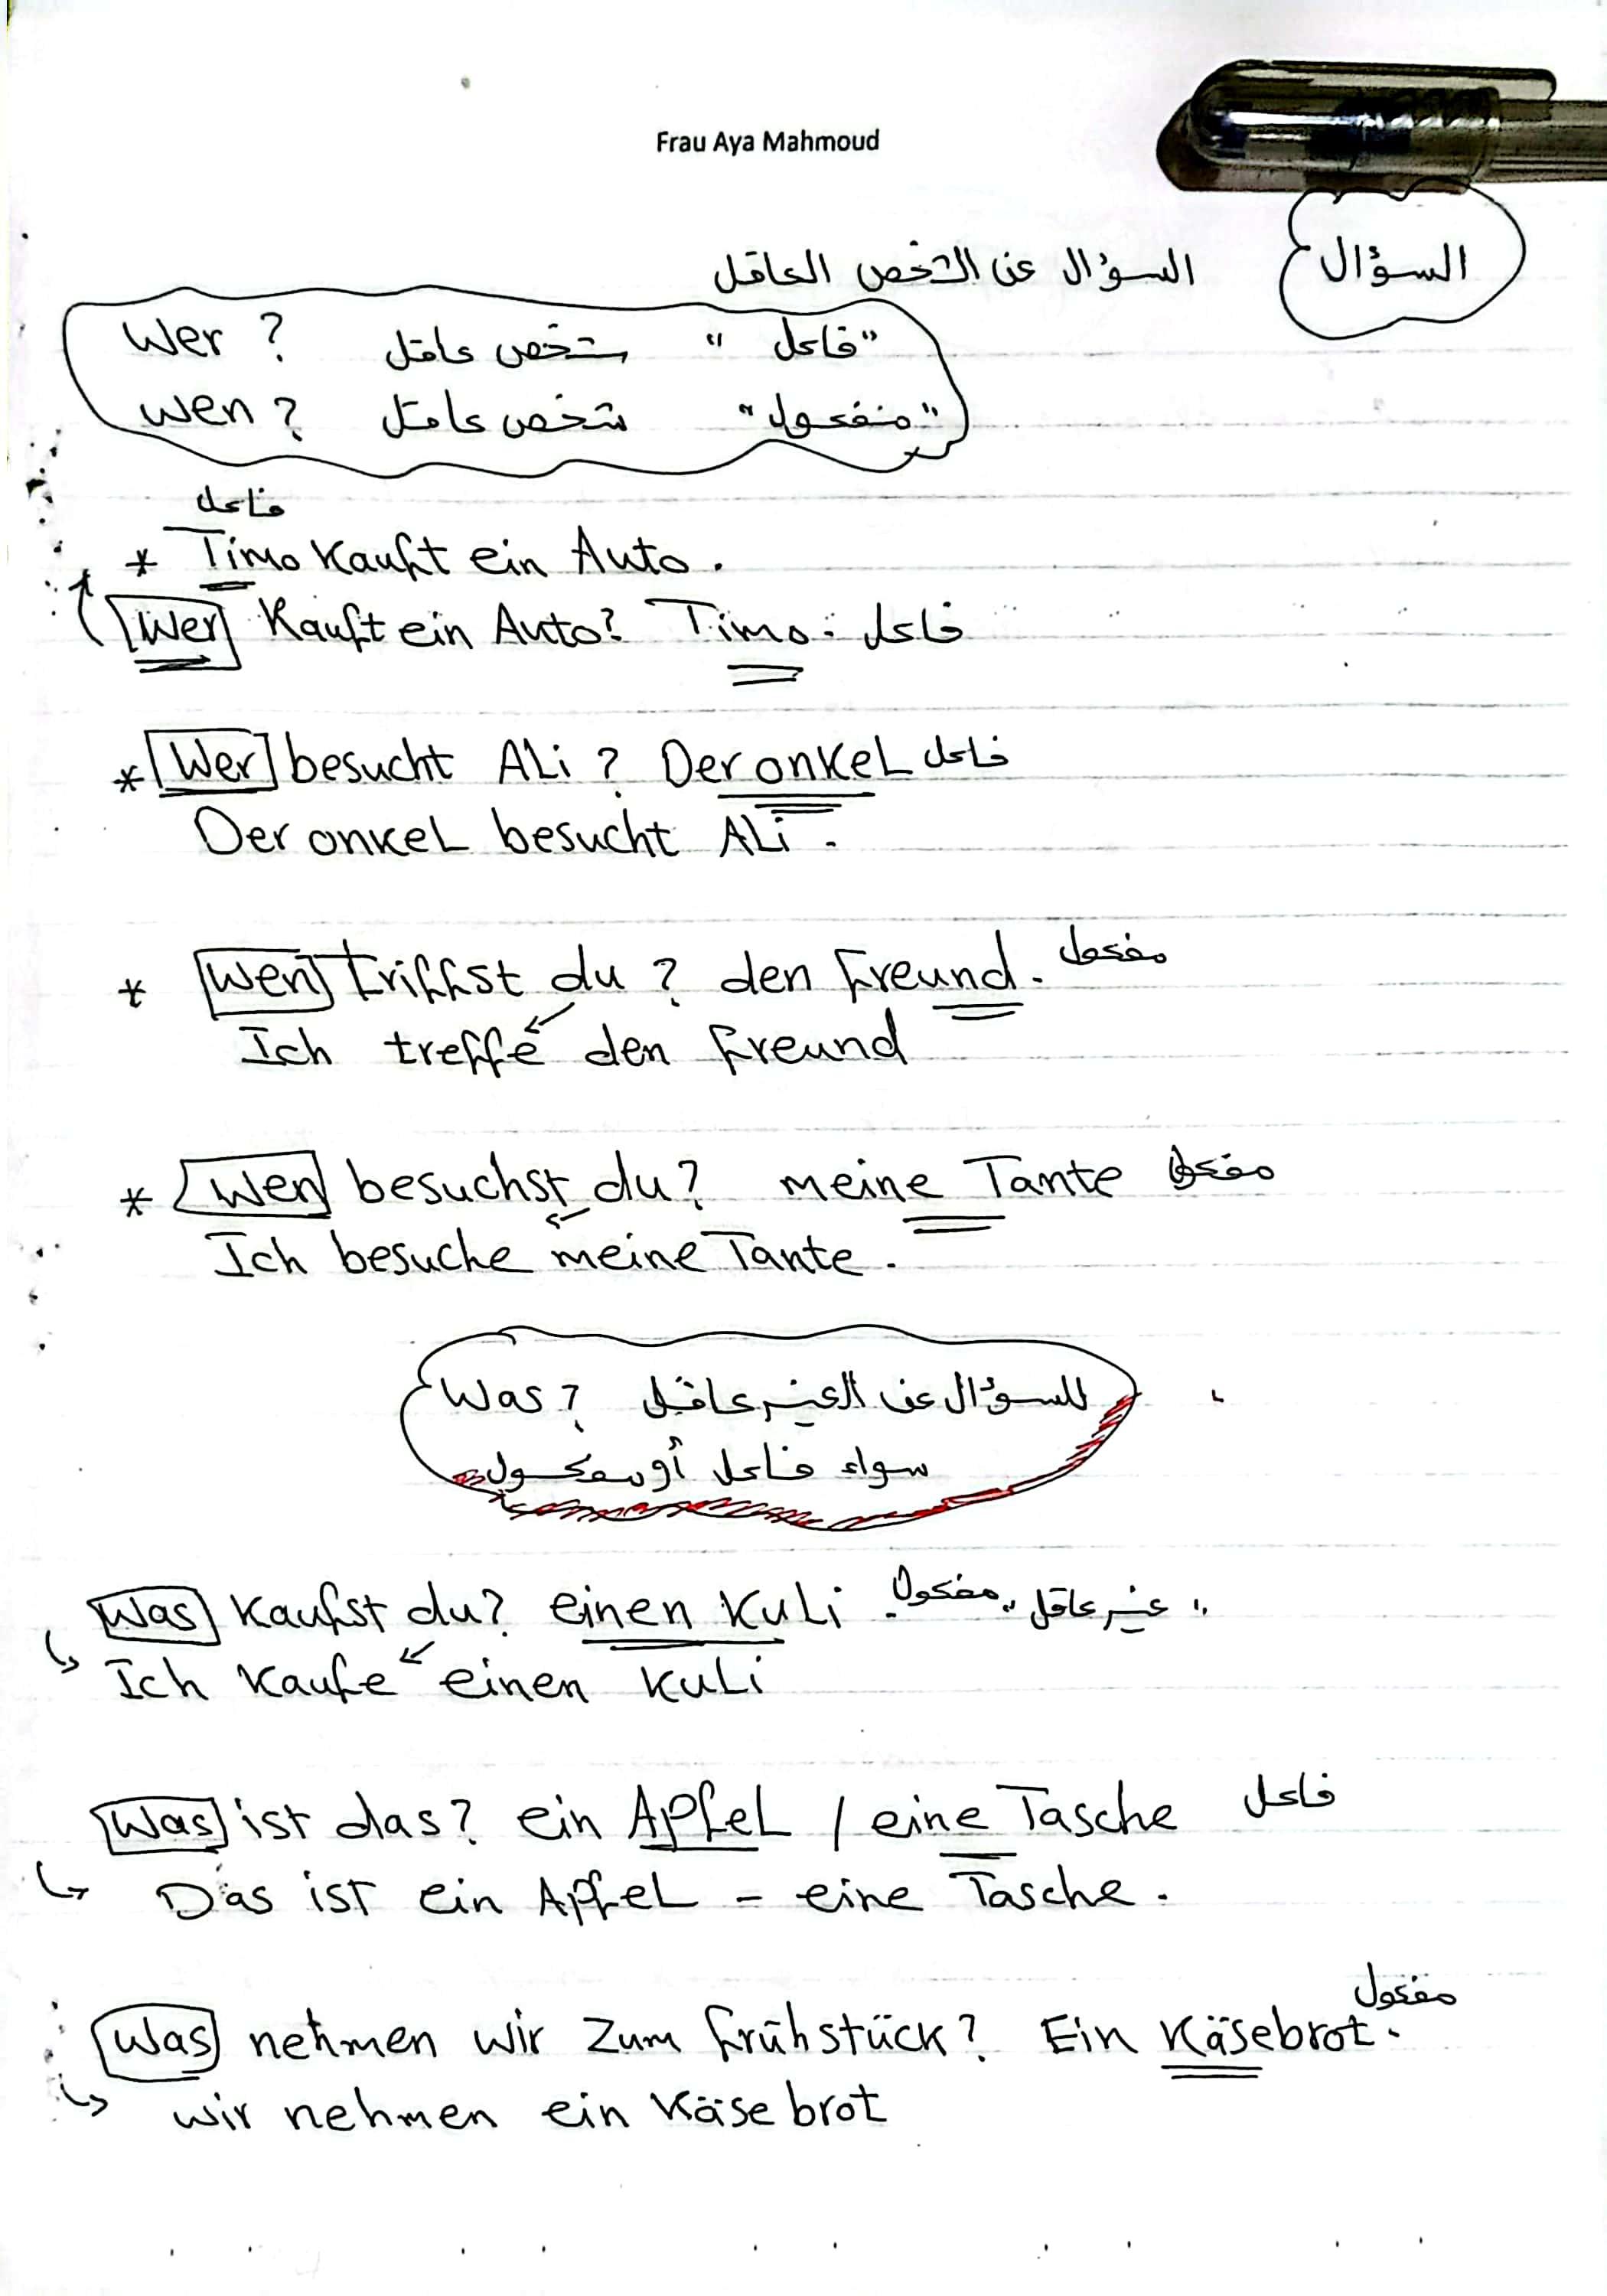 Frau Aya Mahmoud
السؤال
السؤال عن الشخص العاقل
Wer ? شخص عاقل "فاعل"
Wen ? شخص عاقل "مفعول"
فاعل
* Timo Kauft ein Auto.
Wer Kauft ein Auto? Timo. فاعل
* Wer besucht ALi ? Der onkeL فاعل
Der onkeL besucht ALi.
* Wen triffst du ? den freund. مفعول
Ich treffe den freund
* Wen besuchst du? meine Tante مفعول
Ich besuche meine Tante.
Was ? للسؤال عن الغير عاقل
سواء فاعل أو مفعول
Was Kaufst du? einen KuLi. مفعول "غير عاقل"
Ich Kaufe einen KuLi
Was ist das? ein ApfeL / eine Tasche فاعل
Das ist ein ApfeL - eine Tasche.
مفعول
Was nehmen wir zum frühstück? Ein Käsebrot.
wir nehmen ein Käsebrot